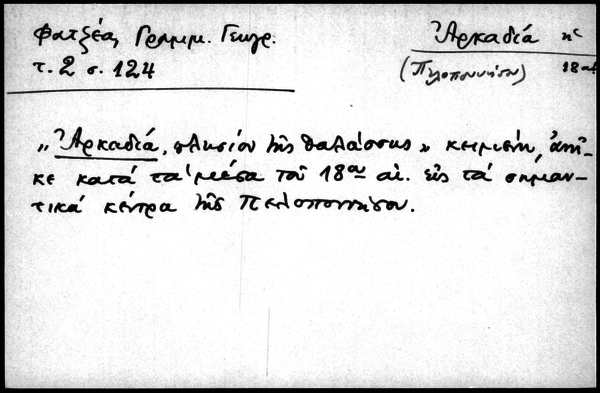 Φατζέας Γραμμ. Γεωγρ.
τ. 2 σ. 124
Ἀρκαδιά
(Πελοποννήσου)
18
„Ἀρκαδιά, πλησίον τῆς θαλάσσης" κειμένη, ἀνῆ-
κε κατά τά μέσα τοῦ 18ου αἰ. εἰς τά σημαν-
τικά κέντρα τῆς Πελοποννήσου.